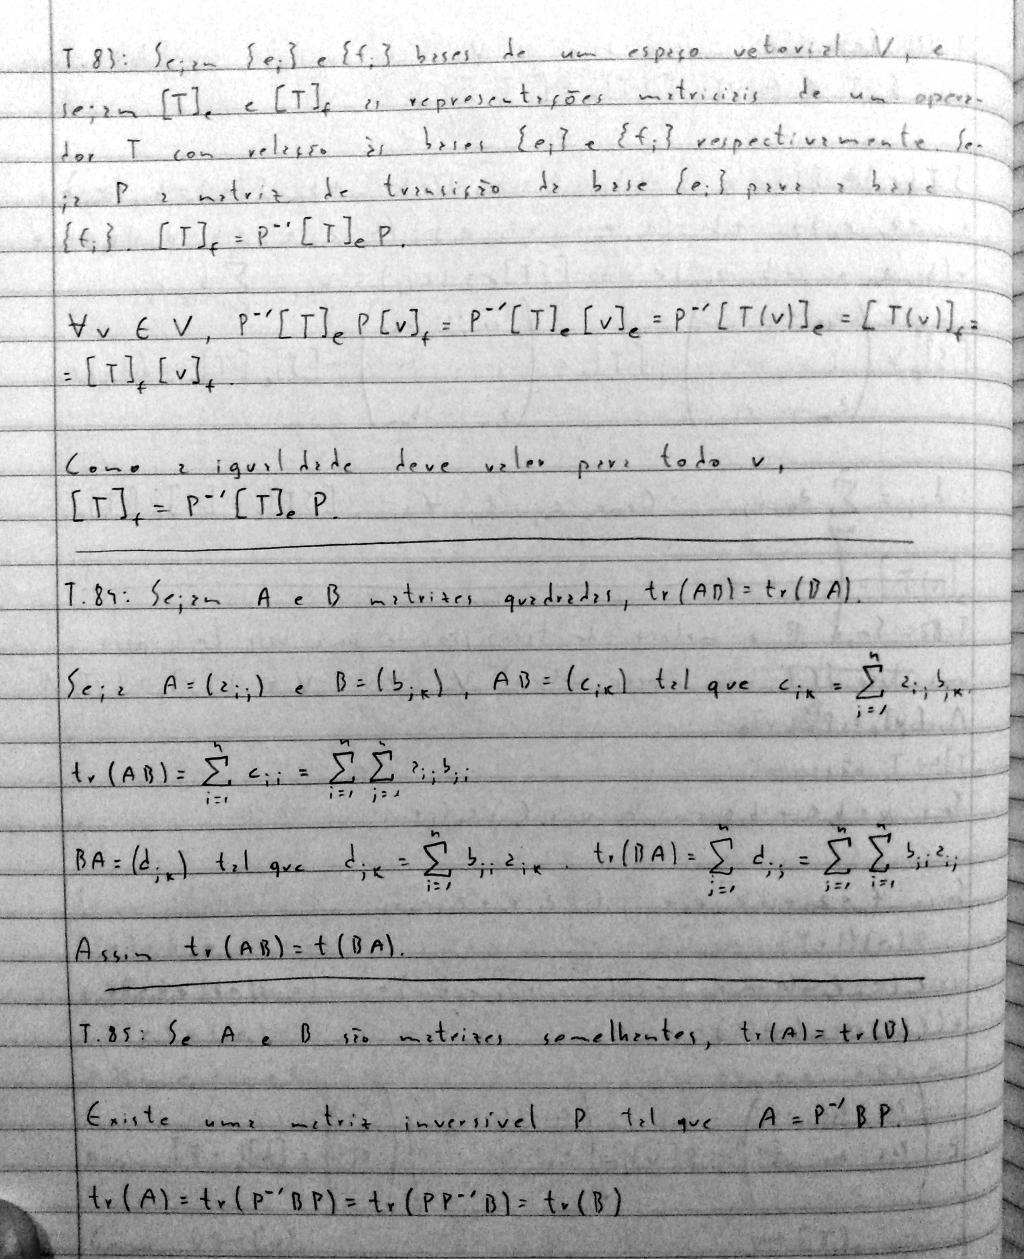 T.83: Sejam {eᵢ} e {fᵢ} bases de um espaço vetorial V, e
sejam [T]ₑ e [T]_f as representações matriciais de um opera-
dor T com relação às bases {eᵢ} e {fᵢ} respectivamente. Se-
ja P a matriz de transição da base {eᵢ} para a base
{fᵢ}. [T]_f = P⁻¹[T]ₑ P.
∀v ∈ V, P⁻¹[T]ₑ P[v]_f = P⁻¹[T]ₑ [v]ₑ = P⁻¹[T(v)]ₑ = [T(v)]_f =
= [T]_f [v]_f.
Como a igualdade deve valer para todo v,
[T]_f = P⁻¹[T]ₑ P.
T.84: Sejam A e B matrizes quadradas, tr(AB) = tr(BA).
Seja A = (aᵢⱼ) e B = (bⱼₖ), AB = (cᵢₖ) tal que cᵢₖ = Σⁿⱼ₌₁ aᵢⱼ bⱼₖ.
tr(AB) = Σⁿᵢ₌₁ cᵢᵢ = Σⁿᵢ₌₁ Σⁿⱼ₌₁ aᵢⱼ bⱼᵢ
BA = (dⱼₖ) tal que dⱼₖ = Σⁿᵢ₌₁ bⱼᵢ aᵢₖ. tr(BA) = Σⁿⱼ₌₁ dⱼⱼ = Σⁿⱼ₌₁ Σⁿᵢ₌₁ bⱼᵢ aᵢⱼ
Assim tr(AB) = t(BA).
T.85: Se A e B são matrizes semelhantes, tr(A) = tr(B).
Existe uma matriz inversível P tal que A = P⁻¹ B P.
tr(A) = tr(P⁻¹BP) = tr(PP⁻¹B) = tr(B)